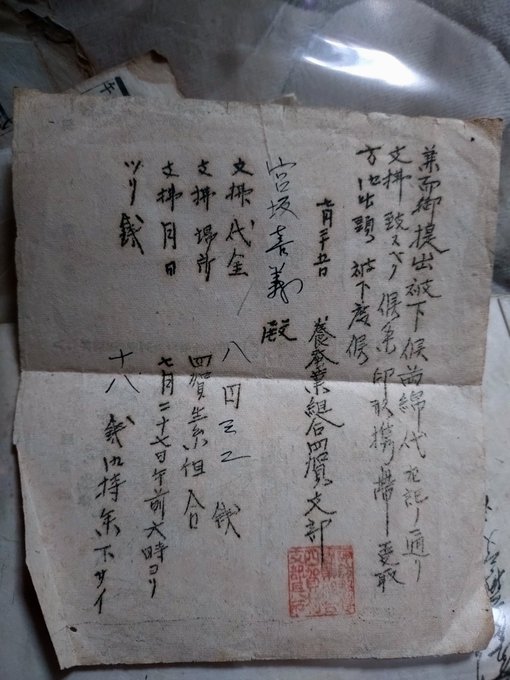 兼而御提出被下候苗綿代左記ノ通リ
支拂致スベク候条印形携帯受取
方御出頭被下度候
七月二十五日
養蚕業組合四賀支部
宮坂喜義殿
支拂代金 八円三二銭
支拂場所 四賀生糸組合
支拂月日 七月二十七日午前六時ヨリ
ツリ銭 十八銭御持参下サイ